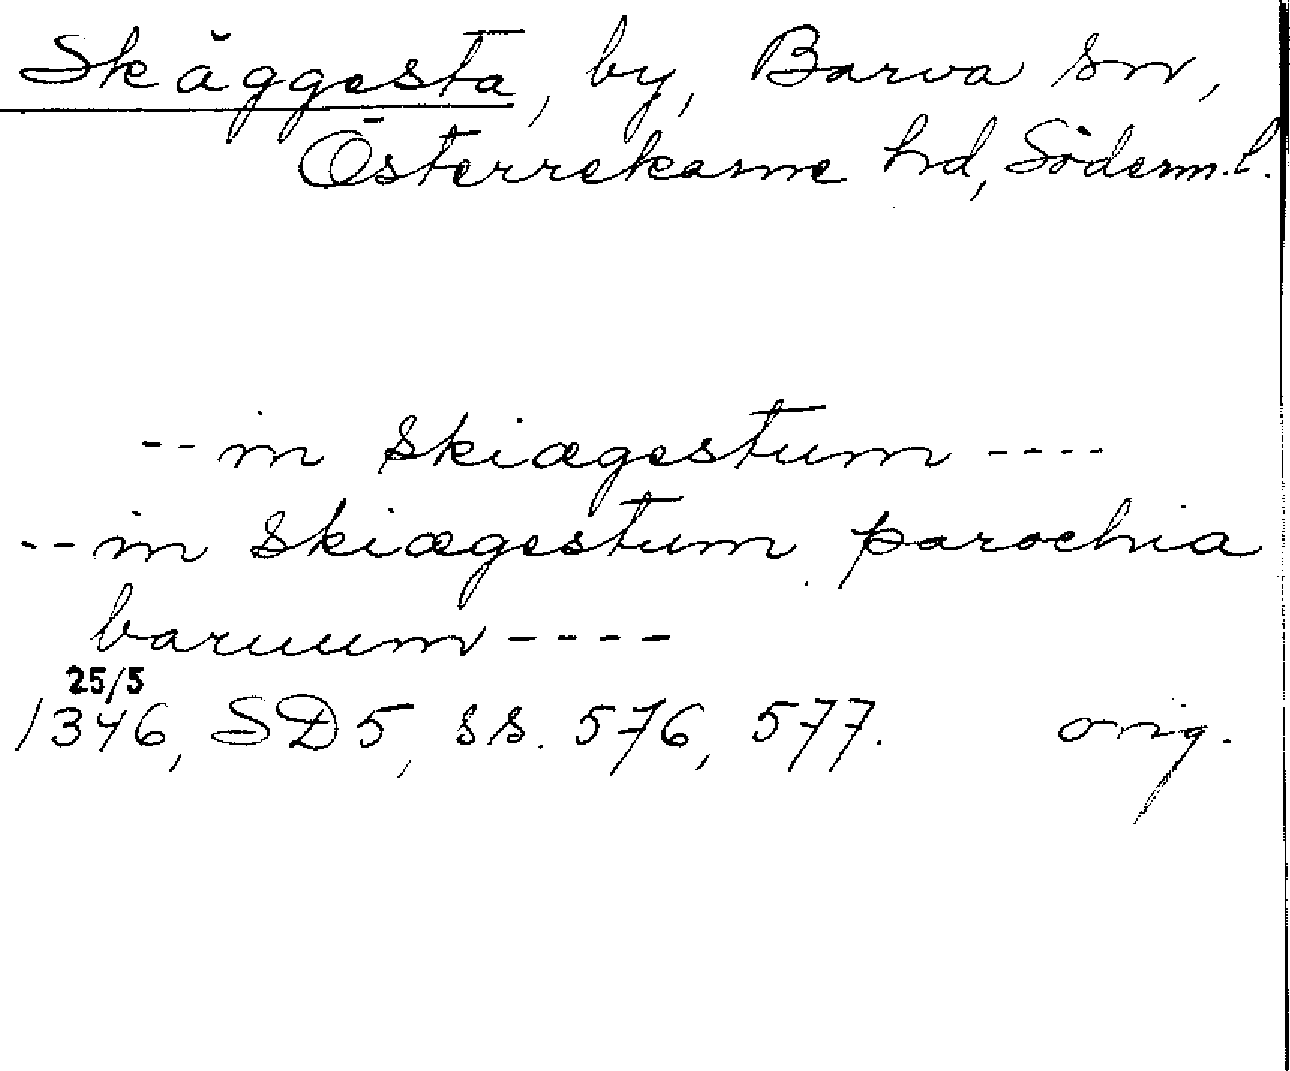 Skäggesta, by, Barva sn,
Österrekarne hd, Söderm. l.
-- in skiægestum ----
-- in skiægestum parochia
baruum ----
25/5
1346, SD 5, ss. 576, 577. orig.